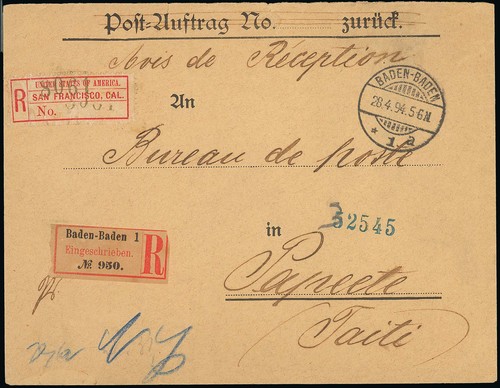 Post-Auftrag No. zurück.
Avis de Reception
UNITED STATES OF AMERICA.
R SAN FRANCISCO, CAL.
No.
An
BADEN-BADEN
28.4.94.5-6N
* 1 a
Bureau de poste
in
52545
Baden-Baden 1
Eingeschrieben. R
№ 950.
Papeete
(Taiti)